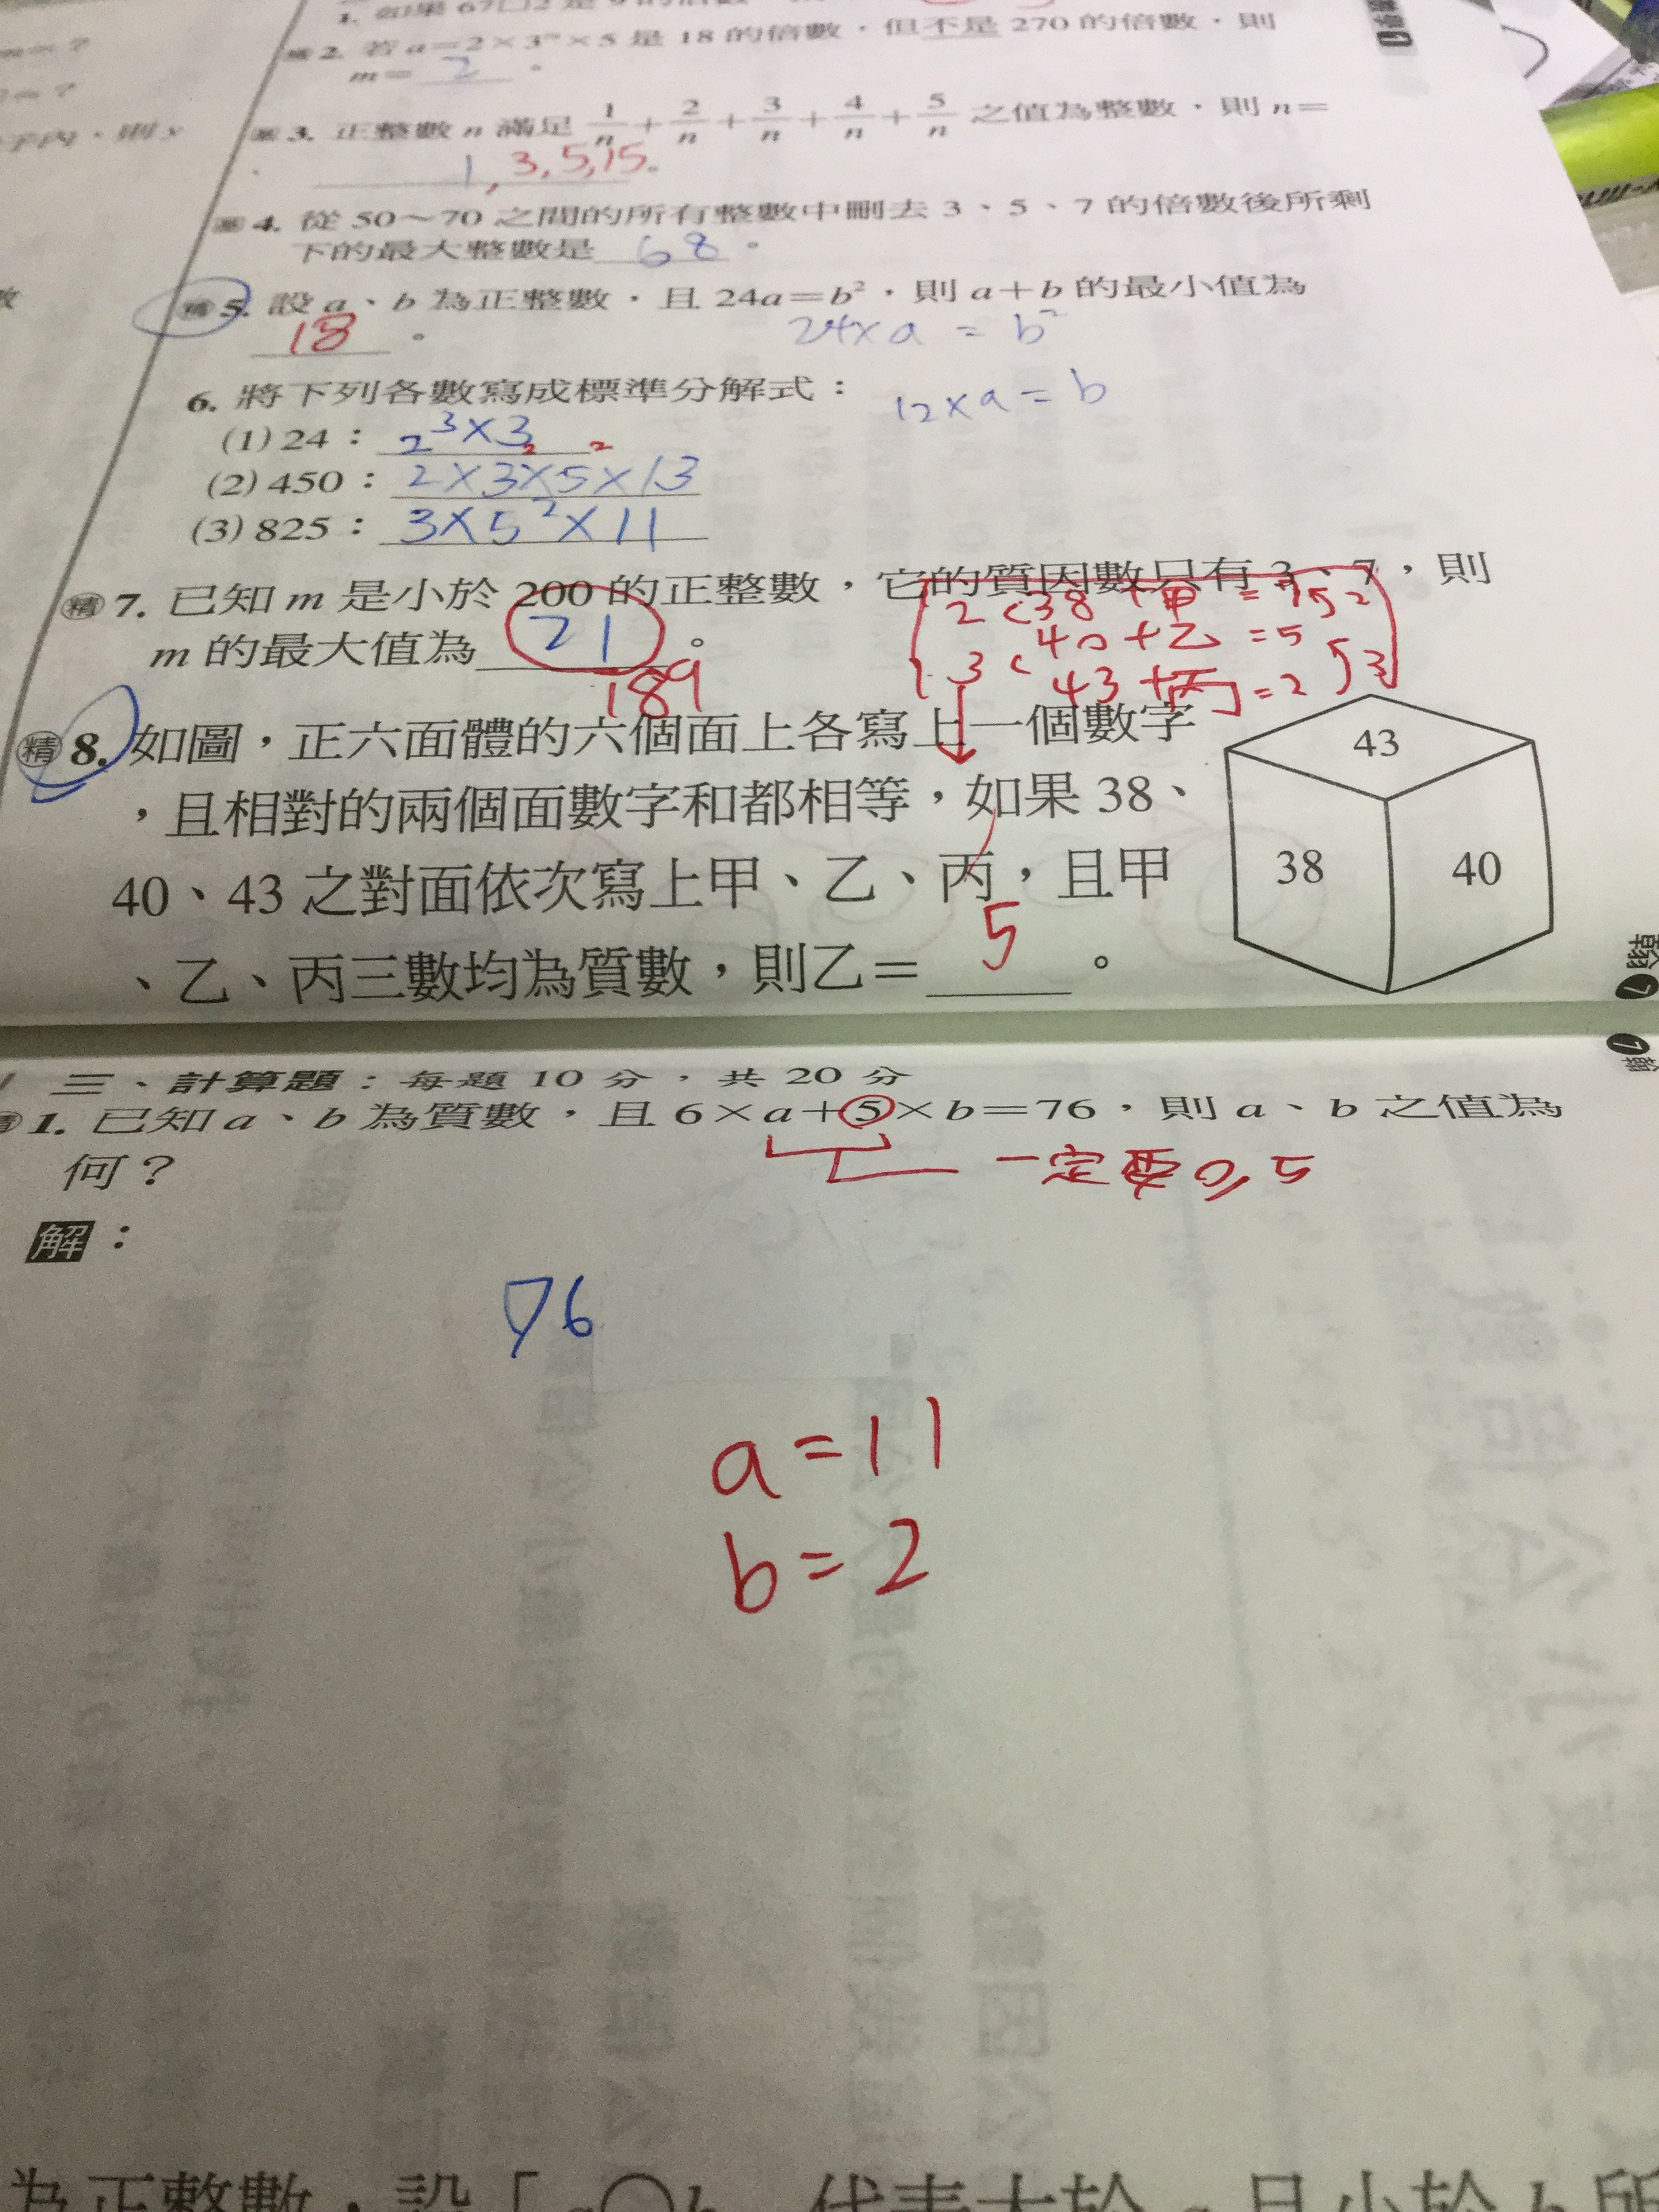 1. 如果 67□2 是 9 的倍數
2. 若 a=2×3ᵐ×5 是 18 的倍數，但不是 270 的倍數，則
m= 2 。
3. 正整數 n 滿足 1/n + 2/n + 3/n + 4/n + 5/n 之值為整數，則 n=
1, 3, 5, 15。
4. 從 50～70 之間的所有整數中刪去 3、5、7 的倍數後所剩
下的最大整數是 68 。
精 5. 設 a、b 為正整數，且 24a=b²，則 a+b 的最小值為
18 。
24×a = b²
12×a = b
6. 將下列各數寫成標準分解式：
(1) 24： 2³×3
(2) 450： 2×3²×5²×13
(3) 825： 3×5²×11
精 7. 已知 m 是小於 200 的正整數，它的質因數只有 3、7，則
m 的最大值為 21 。
189
2 < 38 + 甲 =
40 + 乙 = 5
3 < 43 + 丙 = 2
精 8. 如圖，正六面體的六個面上各寫上一個數字
，且相對的兩個面數字和都相等，如果 38、
40、43 之對面依次寫上甲、乙、丙，且甲
、乙、丙三數均為質數，則乙= 5 。
43
38 40
翰
翰
三、計算題：每題 10 分，共 20 分
1. 已知 a、b 為質數，且 6×a+5×b=76，則 a、b 之值為
何？
一定要 0,5
解：
76
a=11
b=2
為正整數，設「a○b 代表大於 a 且小於 b 所